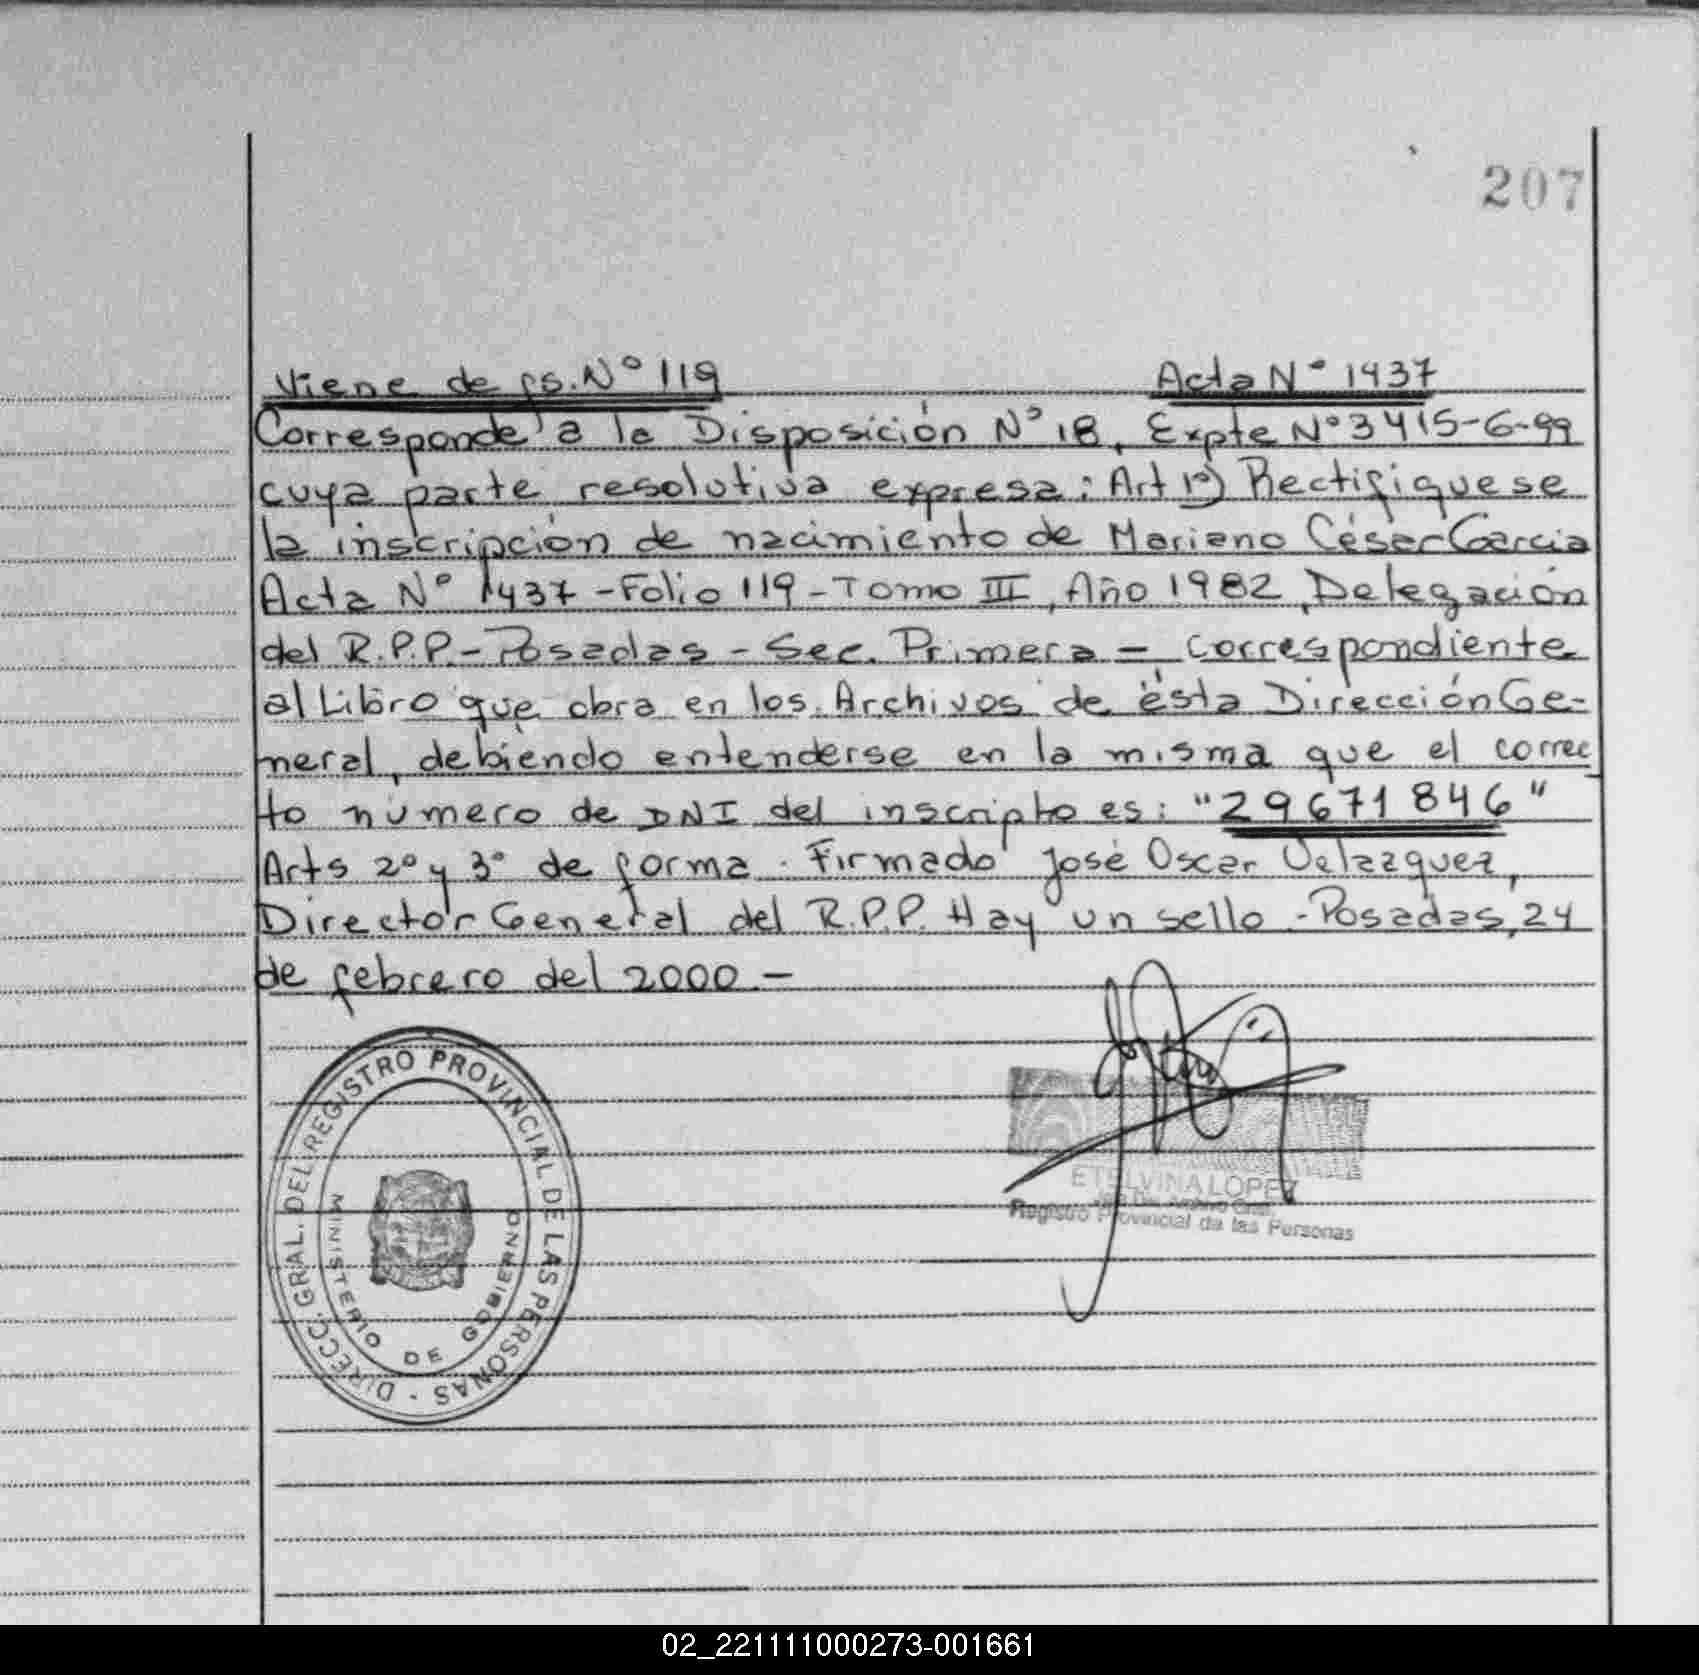 207
Viene de fs. Nº 119 Acta Nº 1437
Corresponde a la Disposición Nº 18, Expte Nº 3415-6-99
cuya parte resolutiva expresa: Art 1º) Rectifiquese
la inscripción de nacimiento de Mariano César Garcia
Acta Nº 1437 - Folio 119 - Tomo III, Año 1982, Delegación
del R.P.P. - Posadas - Sec. Primera - correspondiente
al Libro que obra en los Archivos de ésta Dirección Ge-
neral, debiendo entenderse en la misma que el correc
to número de DNI del inscripto es: "29671846"
Arts 2º y 3º de forma. Firmado José Oscar Velazquez,
Director General del R.P.P. Hay un sello - Posadas, 24
de febrero del 2000 -
DIRECC. GRAL. DEL REGISTRO PROVINCIAL DE LAS PERSONAS -
MINISTERIO DE GOBIERNO
ETELVINA LOPEZ
Registro Provincial de las Personas
02_221111000273-001661